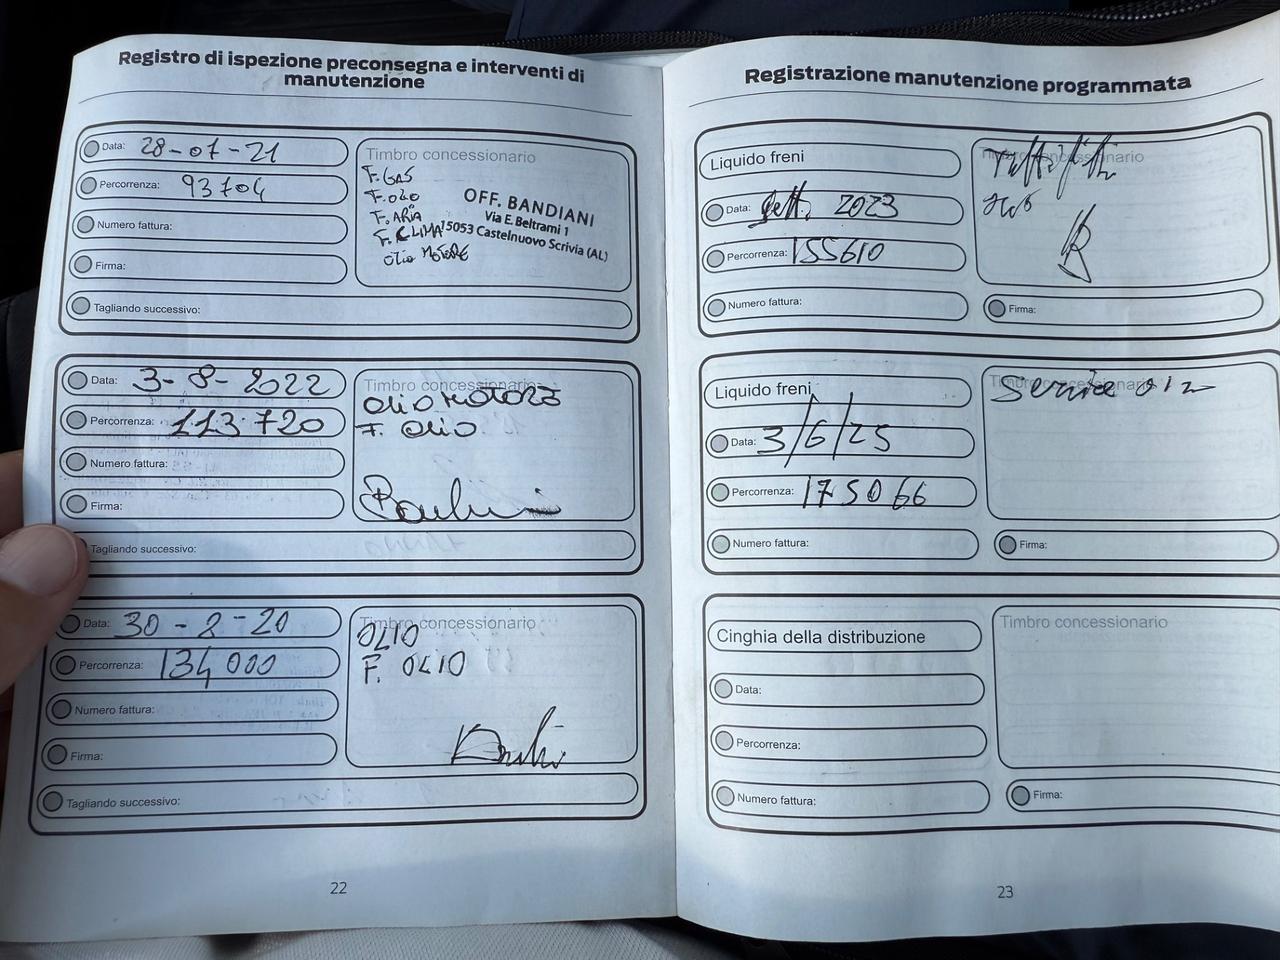 Registro di ispezione preconsegna e interventi di
manutenzione
Data: 28-07-21
Percorrenza: 93704
Numero fattura:
Firma:
Tagliando successivo:
Timbro concessionario
F. GAS
F. OLIO
F. ARIA
F. CLIMA
OLIO MOTORE
OFF. BANDIANI
Via E. Beltrami 1
15053 Castelnuovo Scrivia (AL)
Data: 3-8-2022
Percorrenza: 113.720
Numero fattura:
Firma:
Tagliando successivo:
Timbro concessionario
OLIO MOTORE
F. OLIO
Data: 30-8-20
Percorrenza: 134000
Numero fattura:
Firma:
Tagliando successivo:
Timbro concessionario
OLIO
F. OLIO
22
Registrazione manutenzione programmata
Liquido freni
Data: Sett. 2023
Percorrenza: 155610
Numero fattura:
Timbro concessionario
Firma:
Liquido freni
Data: 3/6/25
Percorrenza: 175066
Numero fattura:
Timbro concessionario
Service
Firma:
Cinghia della distribuzione
Data:
Percorrenza:
Numero fattura:
Timbro concessionario
Firma:
23